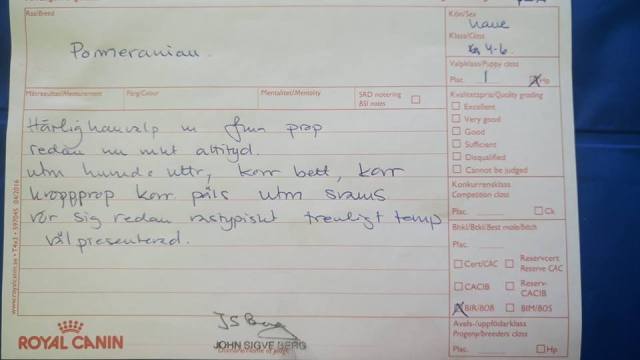 Ras/Breed
Pomeranian
Kön/Sex
hane
Klass/Class
4-6
Valpklass/Puppy class
Plac. 1 Hp
Mätresultat/Measurement Färg/Colour Mentalitet/Mentality SRD notering
BSI notes
Kvalitetspris/Quality grading
Excellent
Very good
Good
Sufficient
Disqualified
Cannot be judged
Härlig hanvalp m fina prop
redan nu mkt attityd.
utm huvud uttr, korr bett, korr
kroppprop korr päls utm svans
rör sig redan rastypiskt trevligt temp
välpresenterad.
Konkurrensklass
Competition class
Plac. Ck
Bhkl/Btkl/Best male/bitch
Plac.
Cert/CAC Reservcert
Reserve CAC
CACIB Reserv-
CACIB
BIR/BOB BIM/BOS
Avels-/uppfödarklass
Progeny/breeders class
Plac. Hp
www.royalcanin.se • T4x3 • 597045 04/2016
ROYAL CANIN
JS Berg
JOHN SIGVE BERG
Domare/Name of judge